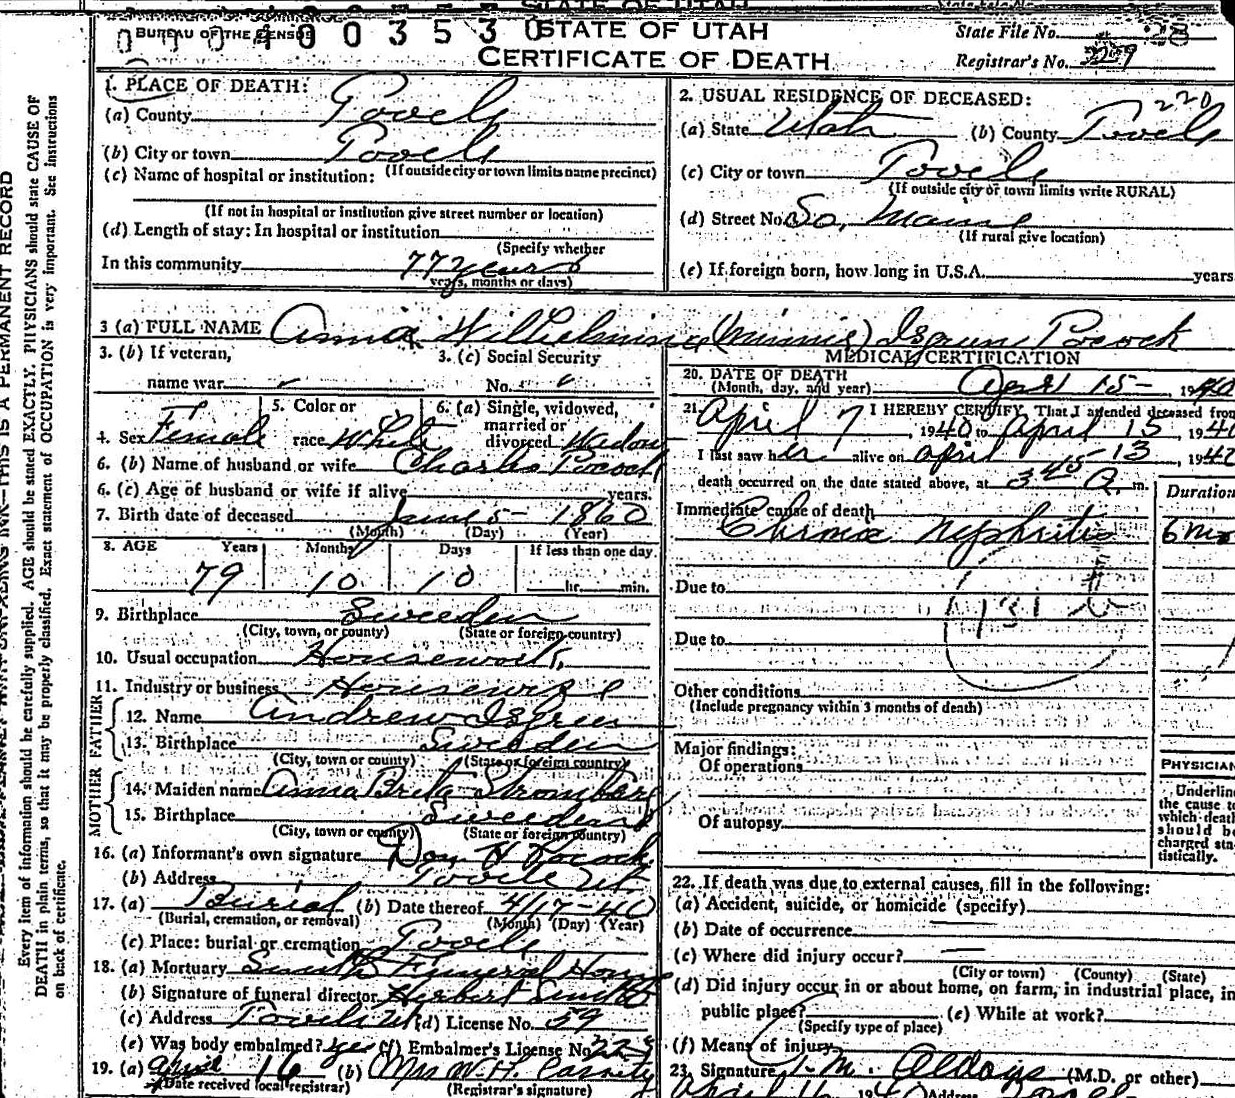 STATE OF UTAH
BUREAU OF THE CENSUS
0 0 0 4 0 0 3 5 3 0
STATE OF UTAH
CERTIFICATE OF DEATH
State File No. 28
Registrar's No. 229
1. PLACE OF DEATH:
(a) County Tooele
(b) City or town Tooele
(If outside city or town limits name precinct)
(c) Name of hospital or institution:
(If not in hospital or institution give street number or location)
(d) Length of stay: In hospital or institution
(Specify whether
In this community 77 years
years, months or days)
2. USUAL RESIDENCE OF DECEASED:
220
(a) State Utah (b) County Tooele
(c) City or town Tooele
(If outside city or town limits write RURAL)
(d) Street No. So. Maine
(If rural give location)
(e) If foreign born, how long in U.S.A. years
3 (a) FULL NAME Anna Wilhelmina (Minnie) Isgreen Pocock
3. (b) If veteran,
name war
3. (c) Social Security
No.
4. Sex Female
5. Color or
race White
6. (a) Single, widowed,
married or
divorced Widow
6. (b) Name of husband or wife Charles Pocock
6. (c) Age of husband or wife if alive years.
7. Birth date of deceased June 5 - 1860
(Month) (Day) (Year)
8. AGE Years Months Days If less than one day
79 10 10 hr. min.
9. Birthplace Sweeden
(City, town, or county) (State or foreign country)
10. Usual occupation Housework
11. Industry or business Housewife
FATHER
12. Name Andrew Isgreen
13. Birthplace Sweeden
(City, town or county) (State or foreign country)
MOTHER
14. Maiden name Anna Brita Stromberg
15. Birthplace Sweeden
(City, town or county) (State or foreign country)
16. (a) Informant's own signature Don H Pocock
(b) Address Tooele Ut
17. (a) Burial (b) Date thereof 4/17-40
(Burial, cremation, or removal) (Month) (Day) (Year)
(c) Place: burial or cremation Tooele
18. (a) Mortuary Smith Funeral Home
(b) Signature of funeral director Herbert Smith
(c) Address Tooele Ut (d) License No. 59
(e) Was body embalmed? yes (f) Embalmer's License No. 225
19. (a) April 16 (b) Mrs W. H.
(Date received local registrar) (Registrar's signature)
MEDICAL CERTIFICATION
20. DATE OF DEATH
(Month, day, and year) April 15 - 1940
21. I HEREBY CERTIFY, That I attended deceased from
April 7, 1940 to April 15, 1940
I last saw her alive on April 13, 1940
death occurred on the date stated above, at 3 45 A. m.
Duration
Immediate cause of death
Chronic Nephritis 6 mos
Due to
131 b
Due to
Other conditions
(Include pregnancy within 3 months of death)
Major findings:
Of operations
Of autopsy
PHYSICIAN
Underline
the cause to
which death
should be
charged sta-
tistically.
22. If death was due to external causes, fill in the following:
(a) Accident, suicide, or homicide (specify)
(b) Date of occurrence
(c) Where did injury occur?
(City or town) (County) (State)
(d) Did injury occur in or about home, on farm, in industrial place, in
public place? (e) While at work?
(Specify type of place)
(f) Means of injury
23. Signature J. M. Aldous (M.D. or other)
April 16 1940 Address Tooele
THIS IS A PERMANENT RECORD
Every item of information should be carefully supplied. AGE should be stated EXACTLY. PHYSICIANS should state CAUSE OF
DEATH in plain terms, so that it may be properly classified. Exact statement of OCCUPATION is very important. See instructions
on back of certificate.